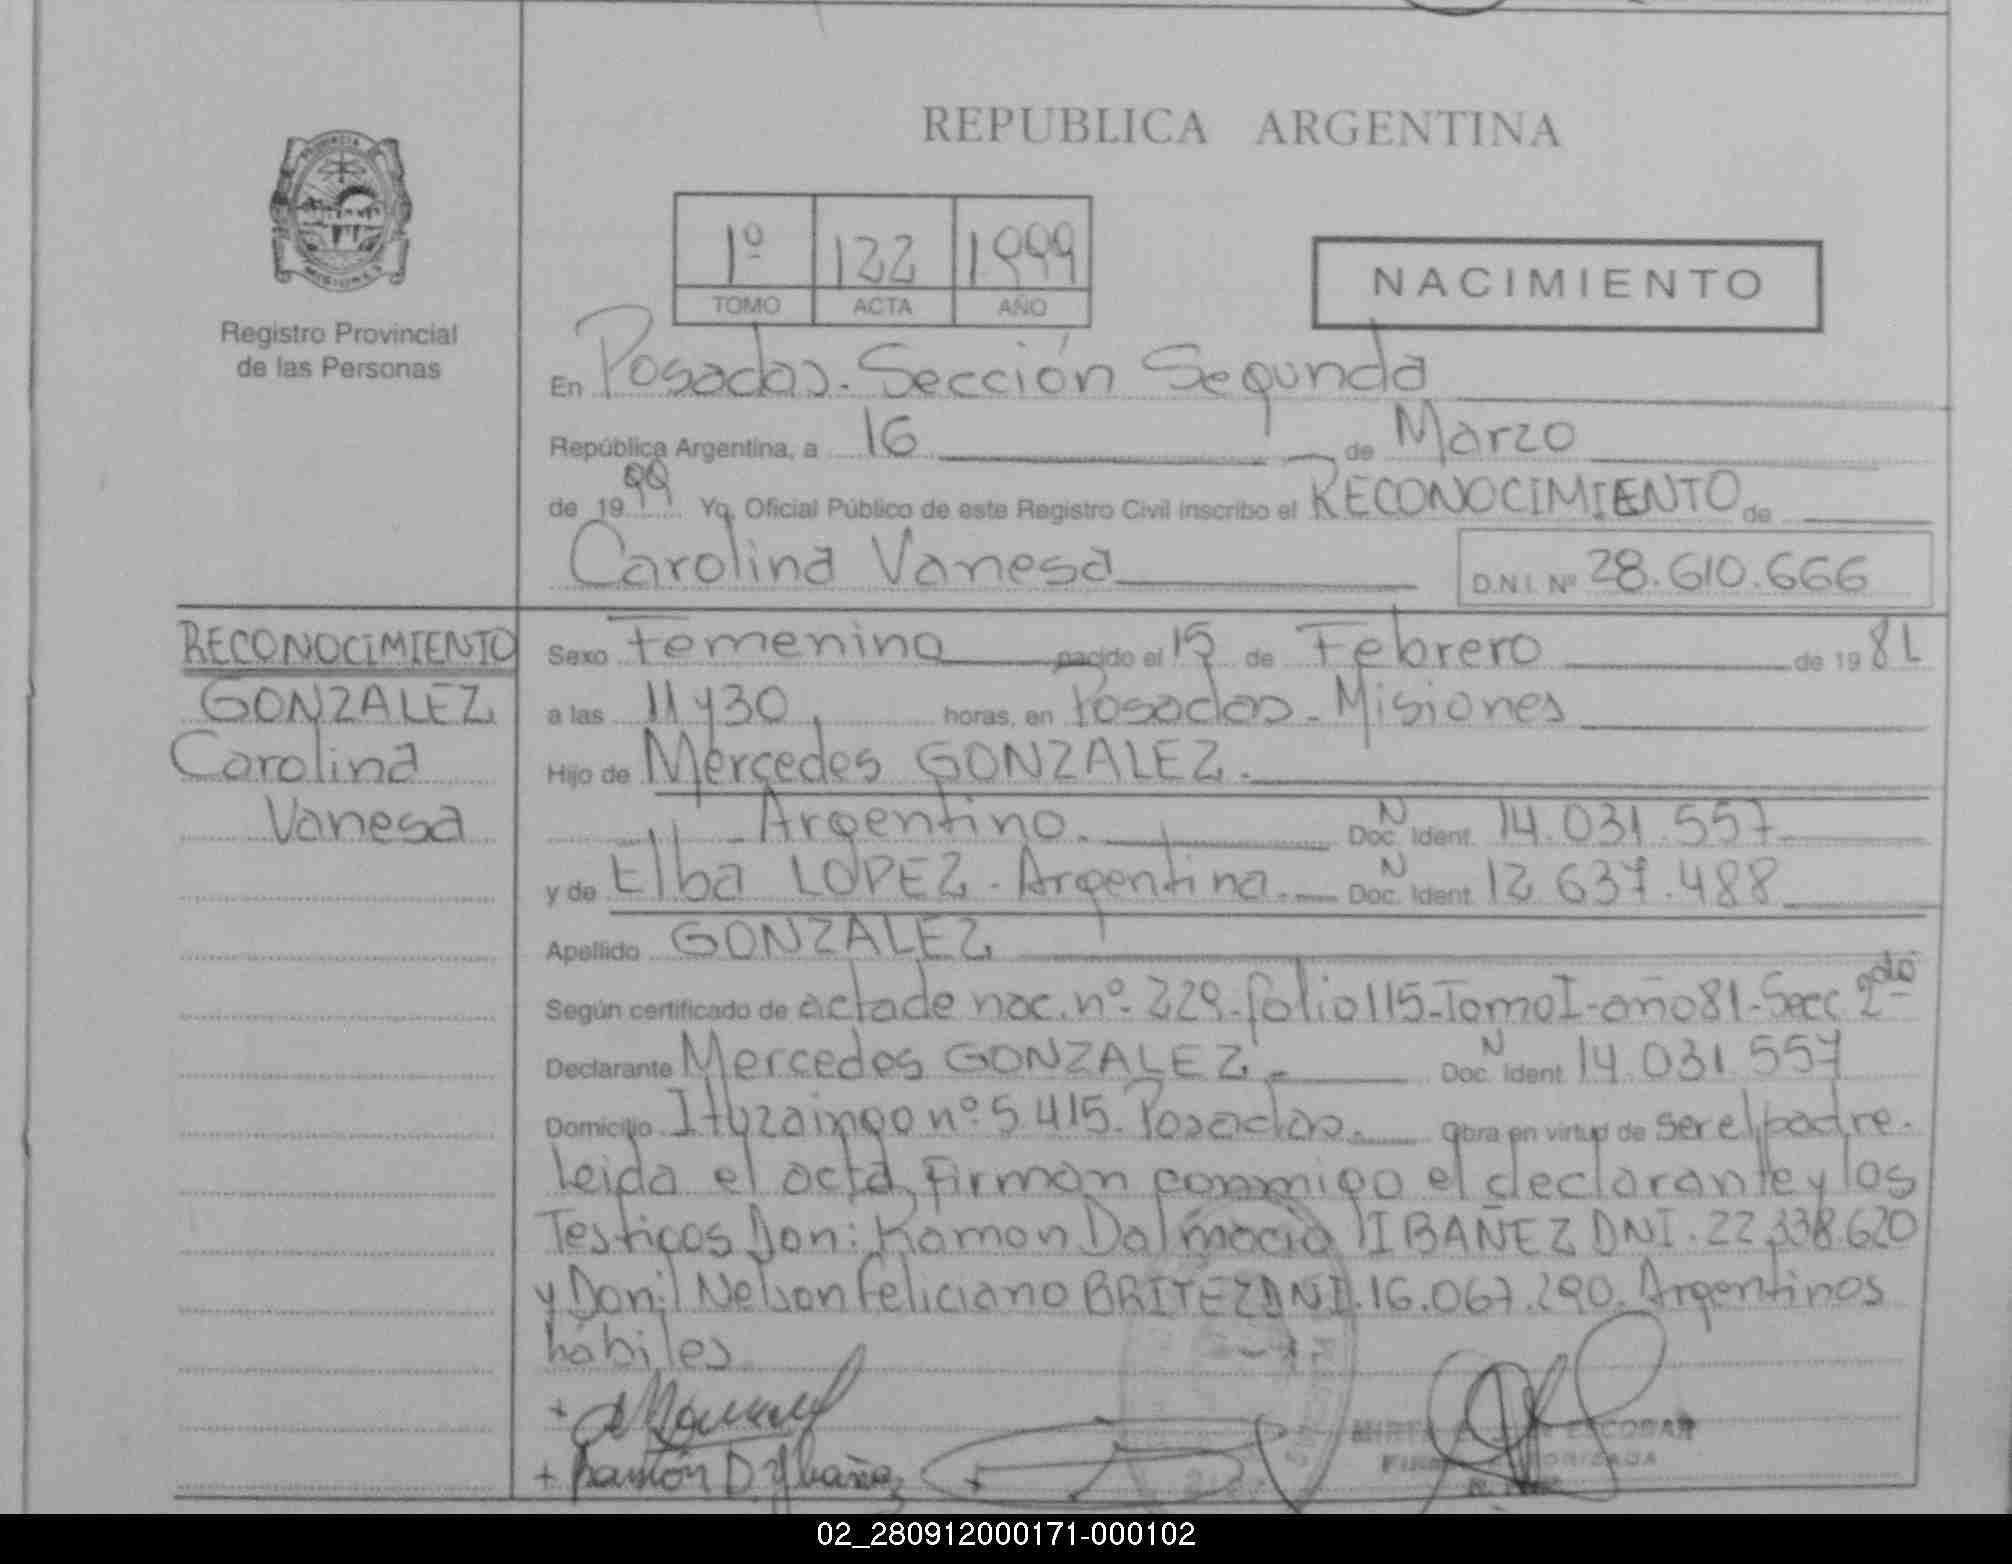 REPUBLICA ARGENTINA
PROVINCIA DE
MISIONES
Registro Provincial
de las Personas
1º 122 1999
TOMO ACTA AÑO
NACIMIENTO
En Posadas - Sección Segunda
República Argentina, a 16 de Marzo
de 1999 Yo, Oficial Público de este Registro Civil inscribo el RECONOCIMIENTO de
Carolina Vanesa D.N.I. Nº 28.610.666
RECONOCIMIENTO
GONZALEZ
Carolina
Vanesa
Sexo Femenino nacido el 15 de Febrero de 1981
a las 11 y 30, horas, en Posadas - Misiones
Hijo de Mercedes GONZALEZ.
Argentino. Doc. N Ident. 14.031.557
y de Elba LOPEZ - Argentina. Doc. N Ident. 12 637.488
Apellido GONZALEZ
Según certificado de acta de nac. nº 229 - folio 115 - Tomo I - año 81 - Secc 2da
Declarante Mercedes GONZALEZ. Doc. N Ident. 14.031.557
Domicilio Ityzaingo nº 5415. Posadas. obra en virtud de ser el padre.
Leida el acta, firman conmigo el declarante y los
Testigos Don: Ramon Dalmacio IBAÑEZ DNI. 22.338.620
y Don: Nelson Feliciano BRITEZ DNI. 16.067.290. Argentinos
hábiles
+
+ Ramón D. Ybañez
ESCOBAR
02_280912000171-000102